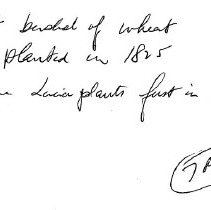 bushel of wheat
planted in 1825
Lucia plants first in